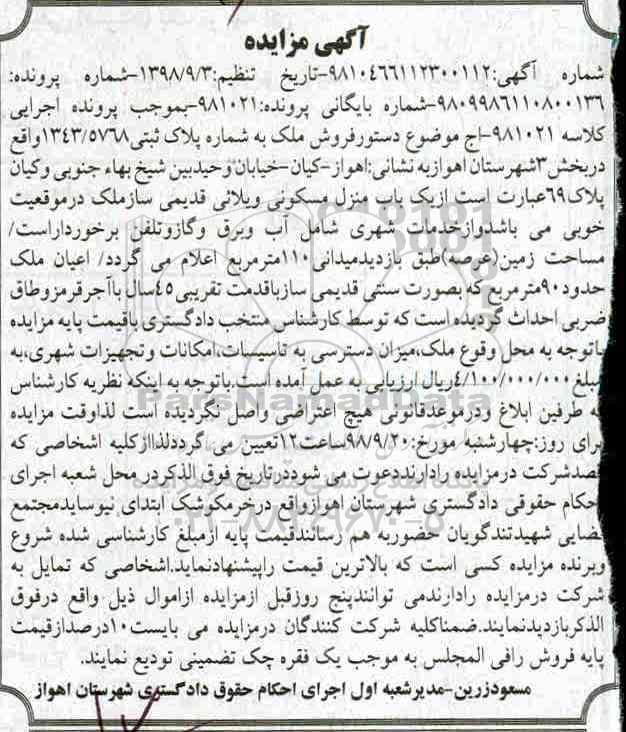 آگهی مزایده
شماره آگهی:۹۸۱۰۴۶۶۱۱۲۳۰۰۱۱۲-تاریخ تنظیم:۱۳۹۸/۹/۳-شماره پرونده:
۹۸۰۹۹۸۶۱۱۰۸۰۰۱۳۶-شماره بایگانی پرونده:۹۸۱۰۲۱-بموجب پرونده اجرایی
کلاسه ۹۸۱۰۲۱-اج موضوع دستورفروش ملک به شماره پلاک ثبتی۱۳۴۳/۵۷۶۸واقع
دربخش۳شهرستان اهوازبه نشانی:اهواز-کیان-خیابان وحیدبین شیخ بهاء جنوبی وکیان
پلاک۶۹عبارت است ازیک باب منزل مسکونی ویلائی قدیمی سازملک درموقعیت
خوبی می باشدوازخدمات شهری شامل آب وبرق وگازوتلفن برخورداراست/
مساحت زمین(عرصه)طبق بازدیدمیدانی۱۱۰مترمربع اعلام می گردد/ اعیان ملک
حدود۹۰مترمربع که بصورت سنتی قدیمی سازباقدمت تقریبی۴۵سال باآجرقرمزوطاق
ضربی احداث گردیده است که توسط کارشناس منتخب دادگستری باقیمت پایه مزایده
باتوجه به محل وقوع ملک،میزان دسترسی به تاسیسات،امکانات وتجهیزات شهری،به
مبلغ۴/۱۰۰/۰۰۰/۰۰۰ریال ارزیابی به عمل آمده است.باتوجه به اینکه نظریه کارشناس
به طرفین ابلاغ ودرموعدقانونی هیچ اعتراضی واصل نگردیده است لذاوقت مزایده
برای روز:چهارشنبه مورخ:۹۸/۹/۲۰ساعت۱۲تعیین می گرددلذاازکلیه اشخاصی که
قصدشرکت درمزایده رادارنددعوت می شوددرتاریخ فوق الذکردر محل شعبه اجرای
احکام حقوقی دادگستری شهرستان اهوازواقع درخرمکوشک ابتدای نیوسایدمجتمع
قضایی شهیدتندگویان حضوربه هم رسانندقیمت پایه ازمبلغ کارشناسی شده شروع
وبرنده مزایده کسی است که بالاترین قیمت راپیشنهادنماید.اشخاصی که تمایل به
شرکت درمزایده رادارندمی توانندپنج روزقبل ازمزایده ازاموال ذیل واقع درفوق
الذکربازدیدنمایند.ضمناکلیه شرکت کنندگان درمزایده می بایست۱۰درصدازقیمت
پایه فروش رافی المجلس به موجب یک فقره چک تضمینی تودیع نمایند.
مسعودزرین-مدیرشعبه اول اجرای احکام حقوق دادگستری شهرستان اهواز
ParsNamadData
۰۲۱-۸۸۳۴۹۶۷۰-۵